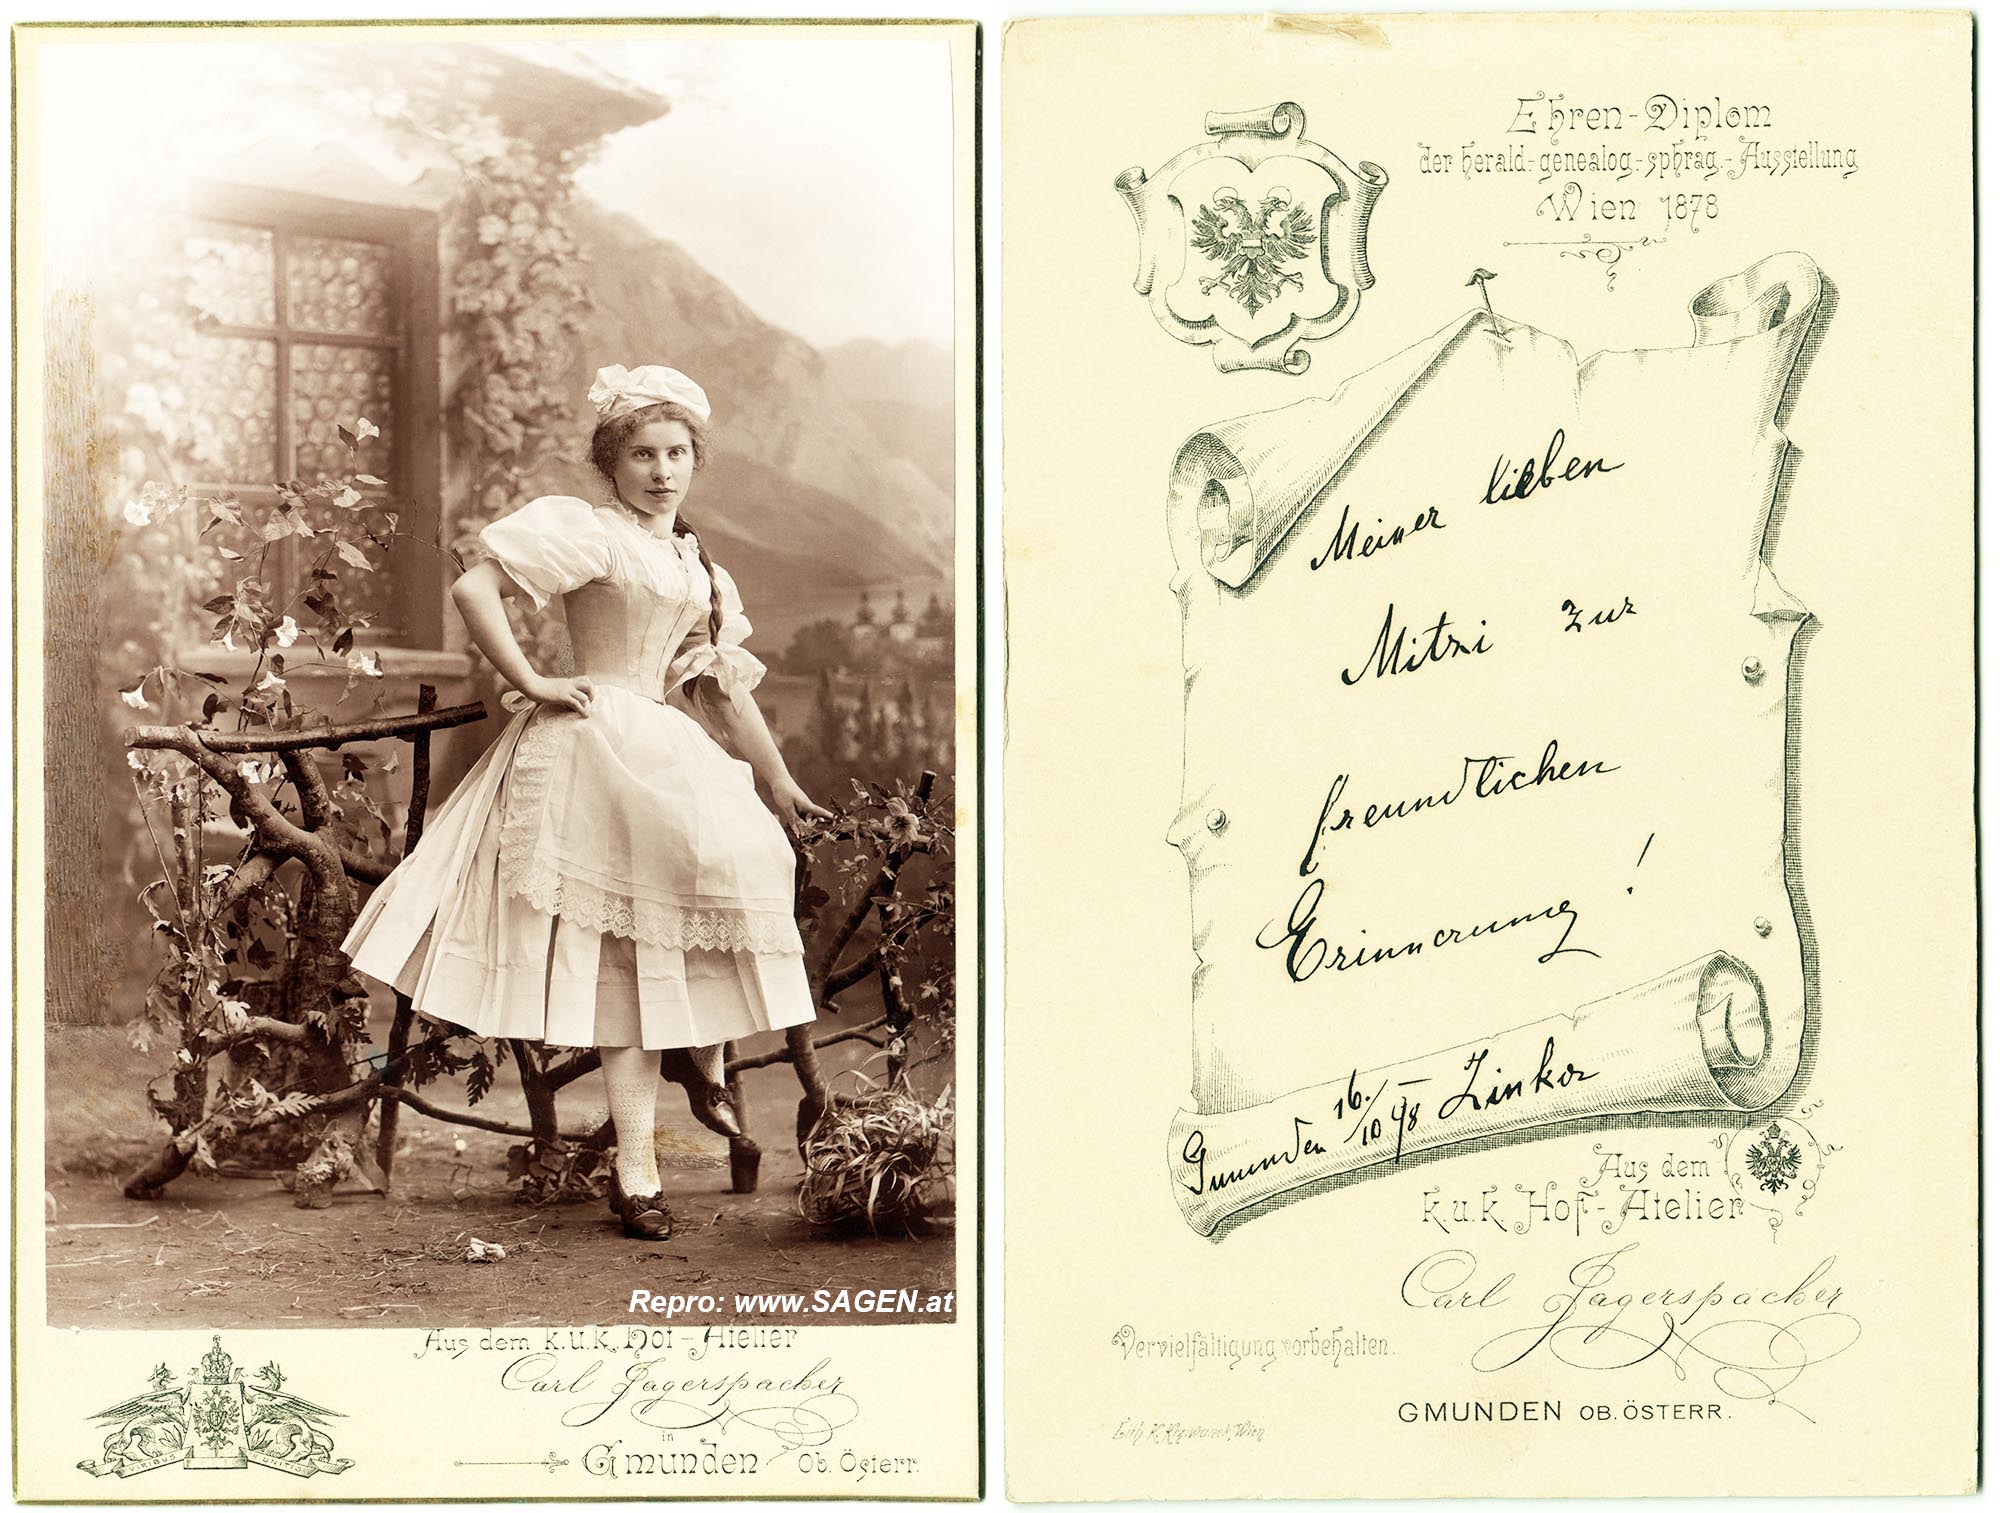 Repro: www.SAGEN.at
Aus dem k.u.k. Hof-Atelier
Carl Jagerspacher
in
Gmunden Ob. Österr.
VIRIBUS UNITIS
Ehren-Diplom
der herald.-genealog.-sphrag.-Ausstellung
Wien 1878
Meiner lieben
Mitzi zur
freundlichen
Erinnerung!
Gmunden 16./10 98 Zinkor
Aus dem
k.u.k. Hof-Atelier
Carl Jagerspacher
Vervielfältigung vorbehalten.
GMUNDEN OB. ÖSTERR.
Lith. K. Krziwanek, Wien